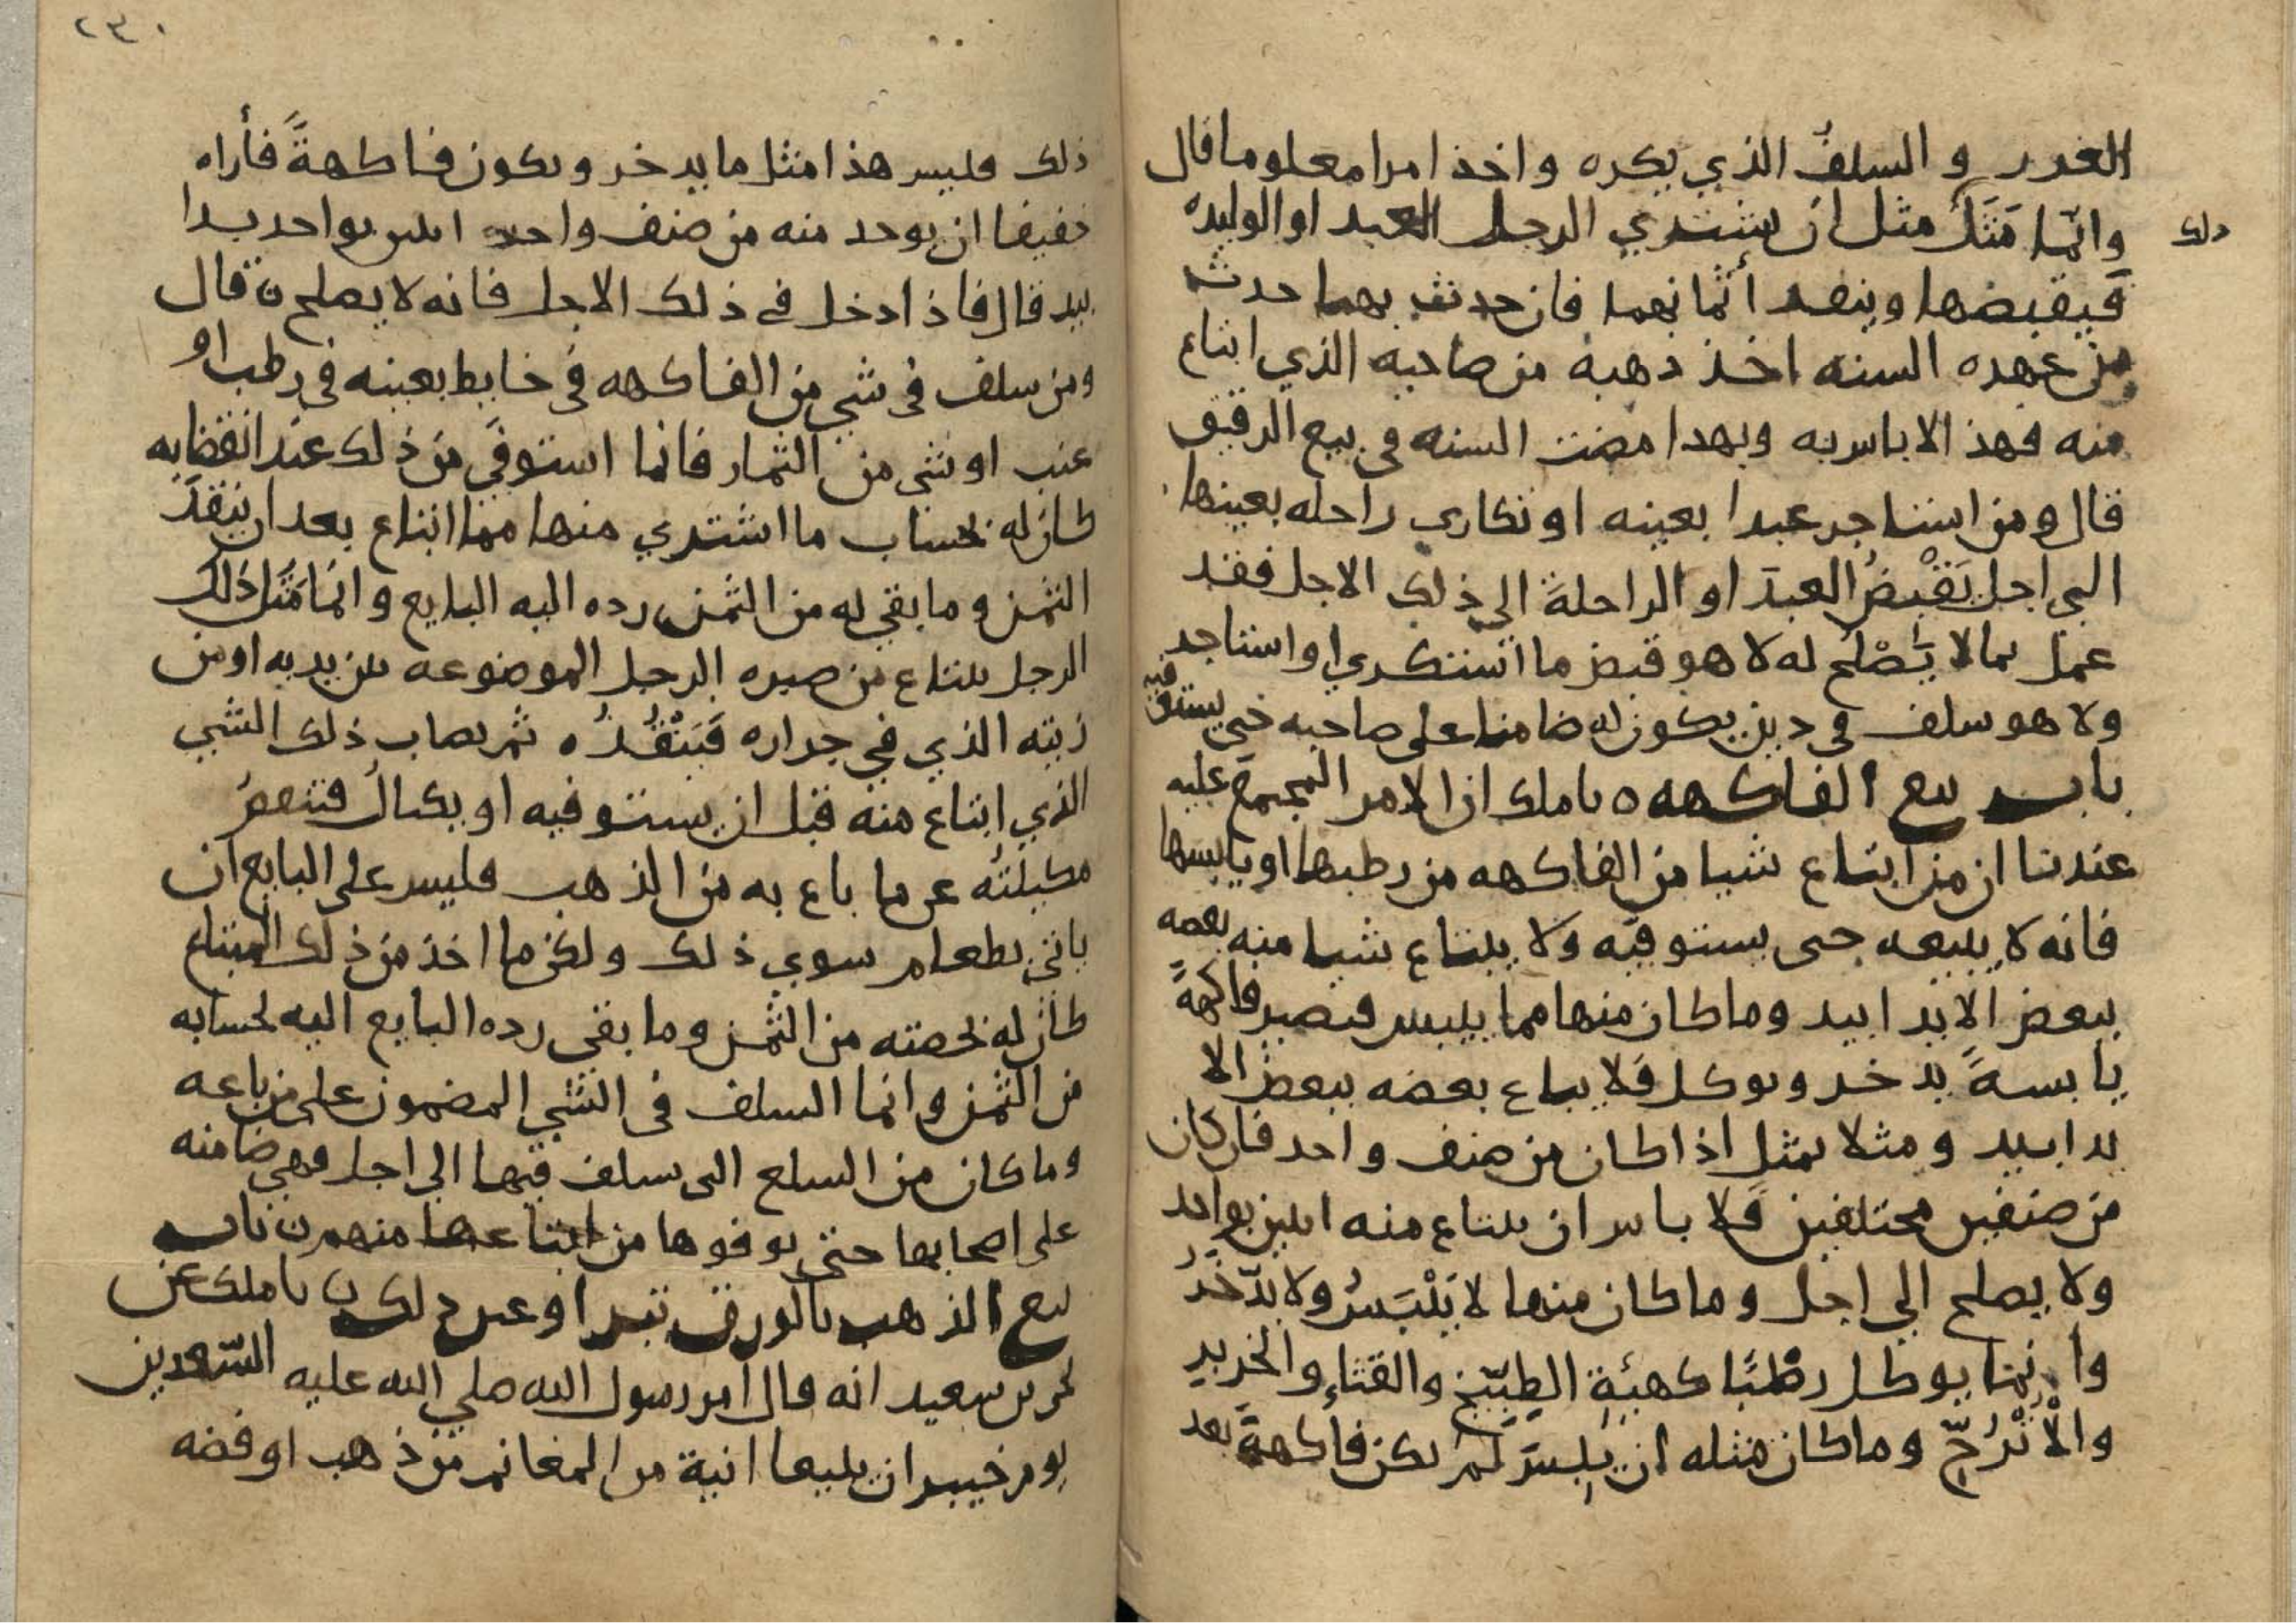 الغرر والسلف الذي يكره واخذ امرا معلوما قال
وانما مَثَلُ ذلك مثل ان يشتري الرجل العبد او الوليده
فيقبضها وينقد أثمانهما فان حدث بهما حدث
من عهده السنه اخذ ذهبه من صاحبه الذي ابتاع
منه فهذا لا باس به وبهذا مضت السنه في بيع الرقيق
قال ومن استاجر عبدا بعينه او تكارى راحله بعينها
الى اجل يَقْبِضُ العبدَ او الراحلةَ الى ذلك الاجل فقد
عمل بما لا يَصْلُح له لا هو قبض ما استكرى او استاجر
ولا هو سلف في دين يكون له ضامنا على صاحبه حتى يستوفيه
باب بيع الفاكهه ه نا ملك ان الامر المجمع عليه
عندنا ان من ابتاع شيا من الفاكهه من رطبها او يابسها
فانه لا يبيعه حتى يستوفيه ولا يبتاع شيا منه بعضه
ببعض الا يدا بيد وما كان منها مما ييبس فيصير فاكهةً
يابسةً يدخر ويوكل فلا يباع بعضه ببعض الا
يدا بيد ومثلا بمثل اذا كان من صنف واحد فان كان
من صنفين مختلفين فلا باس ان يبتاع منه اثنين بواحد
ولا يصلح الى اجل وما كان منها لا يَيْبَسُ ولا يدّخَرُ
وانما يوكل رطبًا كهيئةِ الطِبّيخ والقثاءِ والخربز
والْاُتْرُجّ وما كان مثله ان يبسَ لم يكن فاكهةً بعد
٢٣٠
ذلك فليس هذا مثل ما يدخر ويكون فاكهةً فأراه
خفيفا ان يوخد منه من صنف واحد اثنين بواحد يدا
بيد قال فاذا دخل في ذلك الاجل فانه لا يصلح ن قال
ومن سلف في شي من الفاكهه في حايط بعينه في رطب او
عنب او شي من الثمار فانما استوفي من ذلك عند انقضايه
كان له بحساب ما اشترى منها مما ابتاع بعد ان ينقدَ
الثمن وما بقي له من الثمن رده اليه البايع وانما مَثَلُ ذلك
الرجل يبتاع من صبره الرجل الموضوعه بين يديه او من
زيته الذي في جراره فَيَنْقُدُه ثم يصاب ذلك الشي
الذي ابتاع منه قبل ان يستوفيه او يكتالُ فتنقصُ
مكيلتُه عن ما باع به من الذهب فليس على البايع ان
ياتي بطعام سوى ذلك ولكن ما اخذ من ذلك المبتاع
كان له بحصته من الثمن وما بقي رده البايع اليه بحسابه
من الثمن وانما السلف في الشي المضمون على من باعه
وما كان من السلع التي سلف فيها الى اجل فهي ضامنه
على اصحابها حتى يوفوها من ابتاعها منهم ن باب
بيع الذهب بالورق تبرا وعين ذلك ن نا ملك عن
يحيى بن سعيد انه قال امر رسول الله صلى الله عليه السّعدين
يوم خيبر ان يبيعا انية من المغانم من ذهب او فضه